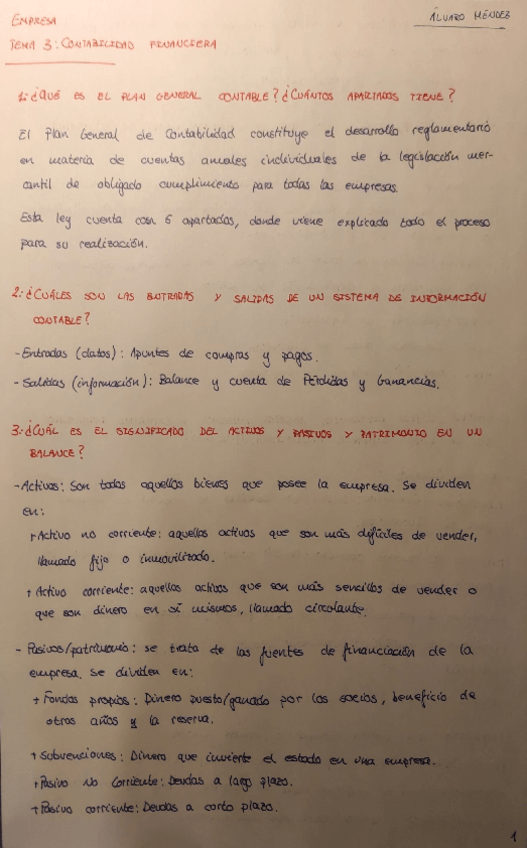 EMPRESA
ÁLVARO MÉNDEZ
TEMA 3: CONTABILIDAD FINANCIERA
1: ¿QUÉ ES EL PLAN GENERAL CONTABLE? ¿CUÁNTOS APARTADOS TIENE?
El Plan General de Contabilidad constituye el desarrollo reglamentario
en materia de cuentas anuales individuales de la legislación mer-
cantil de obligado cumplimiento para todas las empresas.
Esta ley cuenta con 5 apartados, donde viene explicado todo el proceso
para su realización.
2: ¿CUÁLES SON LAS ENTRADAS Y SALIDAS DE UN SISTEMA DE INFORMACIÓN
CONTABLE?
- Entradas (datos): Apuntes de compras y pagos.
- Salidas (información): Balance y cuenta de Pérdidas y Ganancias.
3: ¿CUÁL ES EL SIGNIFICADO DEL ACTIVOS Y PASIVOS Y PATRIMONIO EN UN
BALANCE?
- Activos: Son todos aquellos bienes que posee la empresa. Se dividen
en:
+ Activo no corriente: aquellos activos que son más difíciles de vender,
llamado fijo o inmovilizado.
+ Activo corriente: aquellos activos que son más sencillos de vender o
que son dinero en sí mismos, llamado circolante.
- Pasivos/patrimonio: se trata de las fuentes de financiación de la
empresa. Se dividen en:
+ Fondos propios: Dinero puesto/ganado por los socios, beneficio de
otros años y la reserva.
+ Subvenciones: Dinero que invierte el estado en una empresa.
+ Pasivo No Corriente: Deudas a largo plazo.
+ Pasivo corriente: Deudas a corto plazo.
1